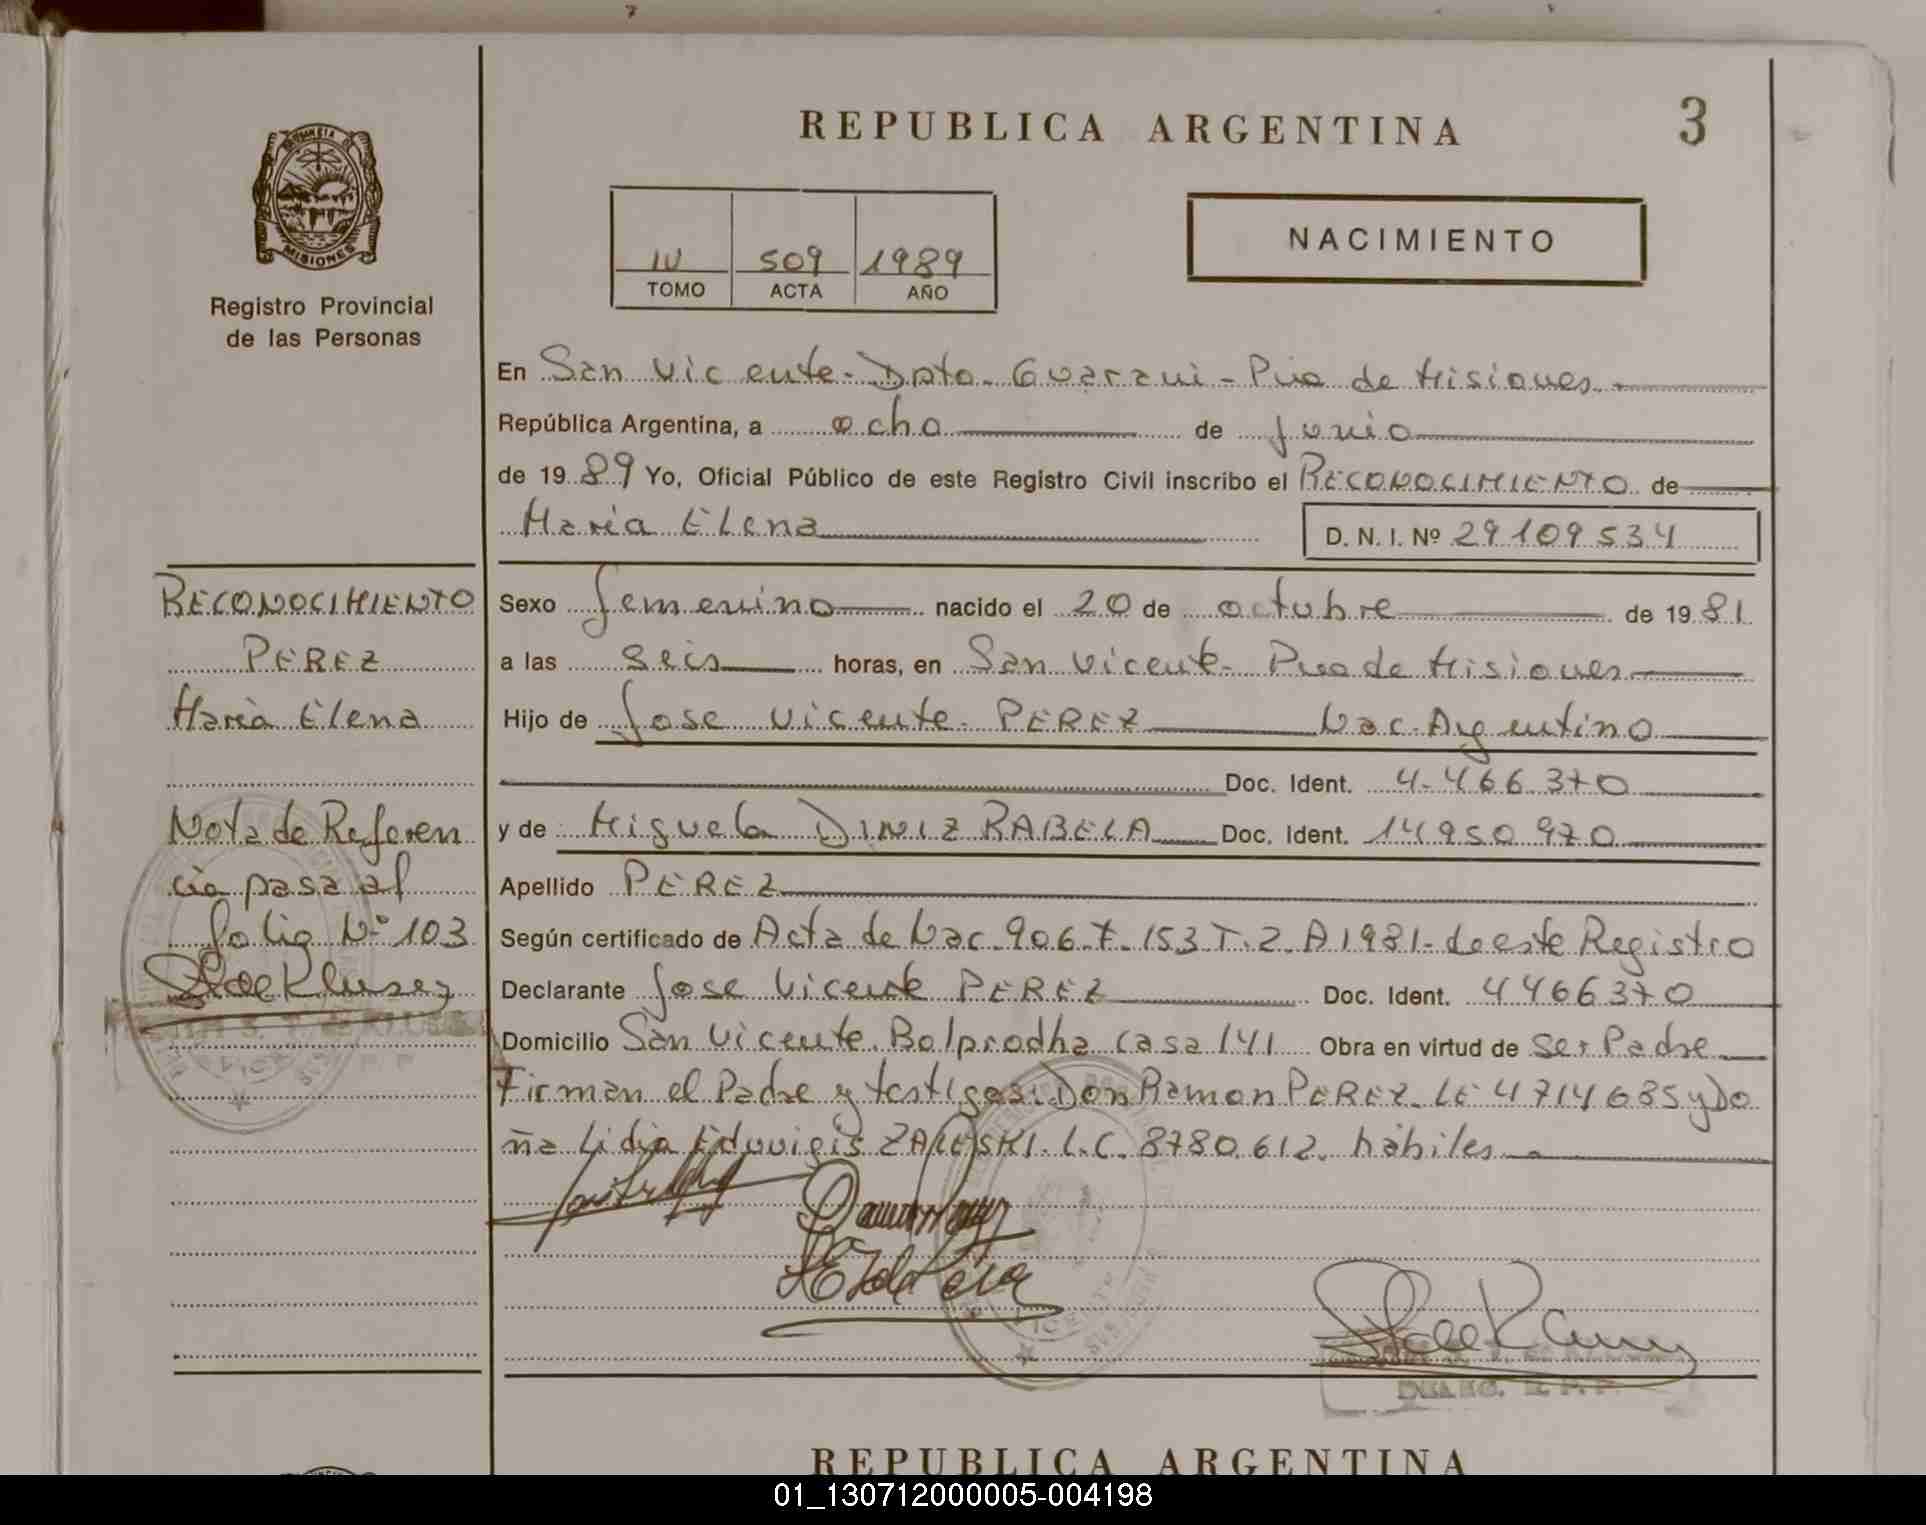 REPUBLICA ARGENTINA
3
MISIONES
Registro Provincial
de las Personas
IV 509 1989
TOMO ACTA AÑO
NACIMIENTO
En San Vicente - Dpto. Guarani - Pcia de Misiones.
República Argentina, a ocho de junio
de 1989 Yo, Oficial Público de este Registro Civil inscribo el RECONOCIMIENTO de
Maria Elena
D. N. I. Nº 29109534
Sexo femenino nacido el 20 de octubre de 1981
a las seis horas, en San Vicente - Pcia de Misiones
Hijo de Jose Vicente PEREZ Nac. Argentino
Doc. Ident. 4.466.370
y de Miguela DINIZ RABELA Doc. Ident. 14950970
Apellido PEREZ
Según certificado de Acta de Nac. 906 F. 153 T. 2. A 1981 - de este Registro
Declarante Jose Vicente PEREZ Doc. Ident. 4466370
Domicilio San Vicente. Bo Iprodha casa 141 Obra en virtud de ser Padre
Firman el Padre y testigos: Don Ramon PEREZ. LE 4714685 y Do
ña Lidia Eduvigis ZALESKI. L.C. 8780.612. hábiles
RECONOCIMIENTO
PEREZ
Maria Elena
Nota de Referen
cia pasa al
folio Nº 103
REPUBLICA ARGENTINA
01_130712000005-004198